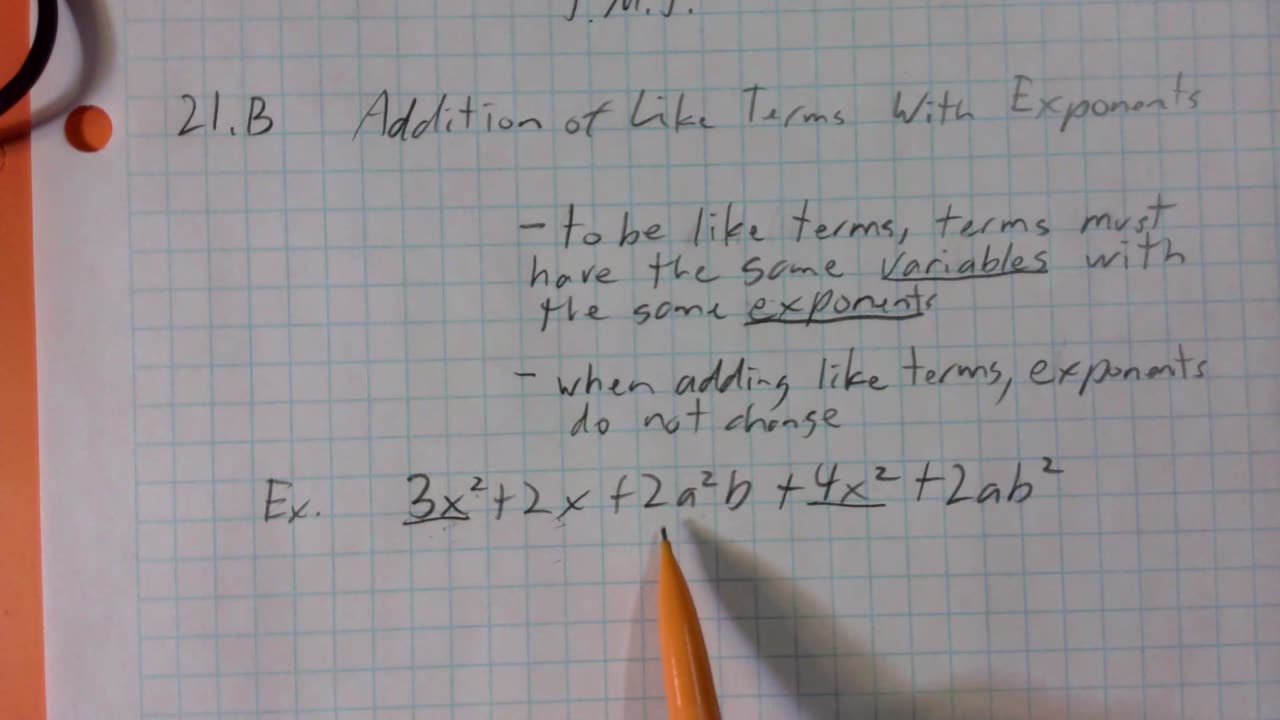 J.M.J.
21.B Addition of Like Terms With Exponents
- to be like terms, terms must
have the same variables with
the same exponents
- when adding like terms, exponents
do not change
Ex. 3x² + 2x + 2a²b + 4x² + 2ab²